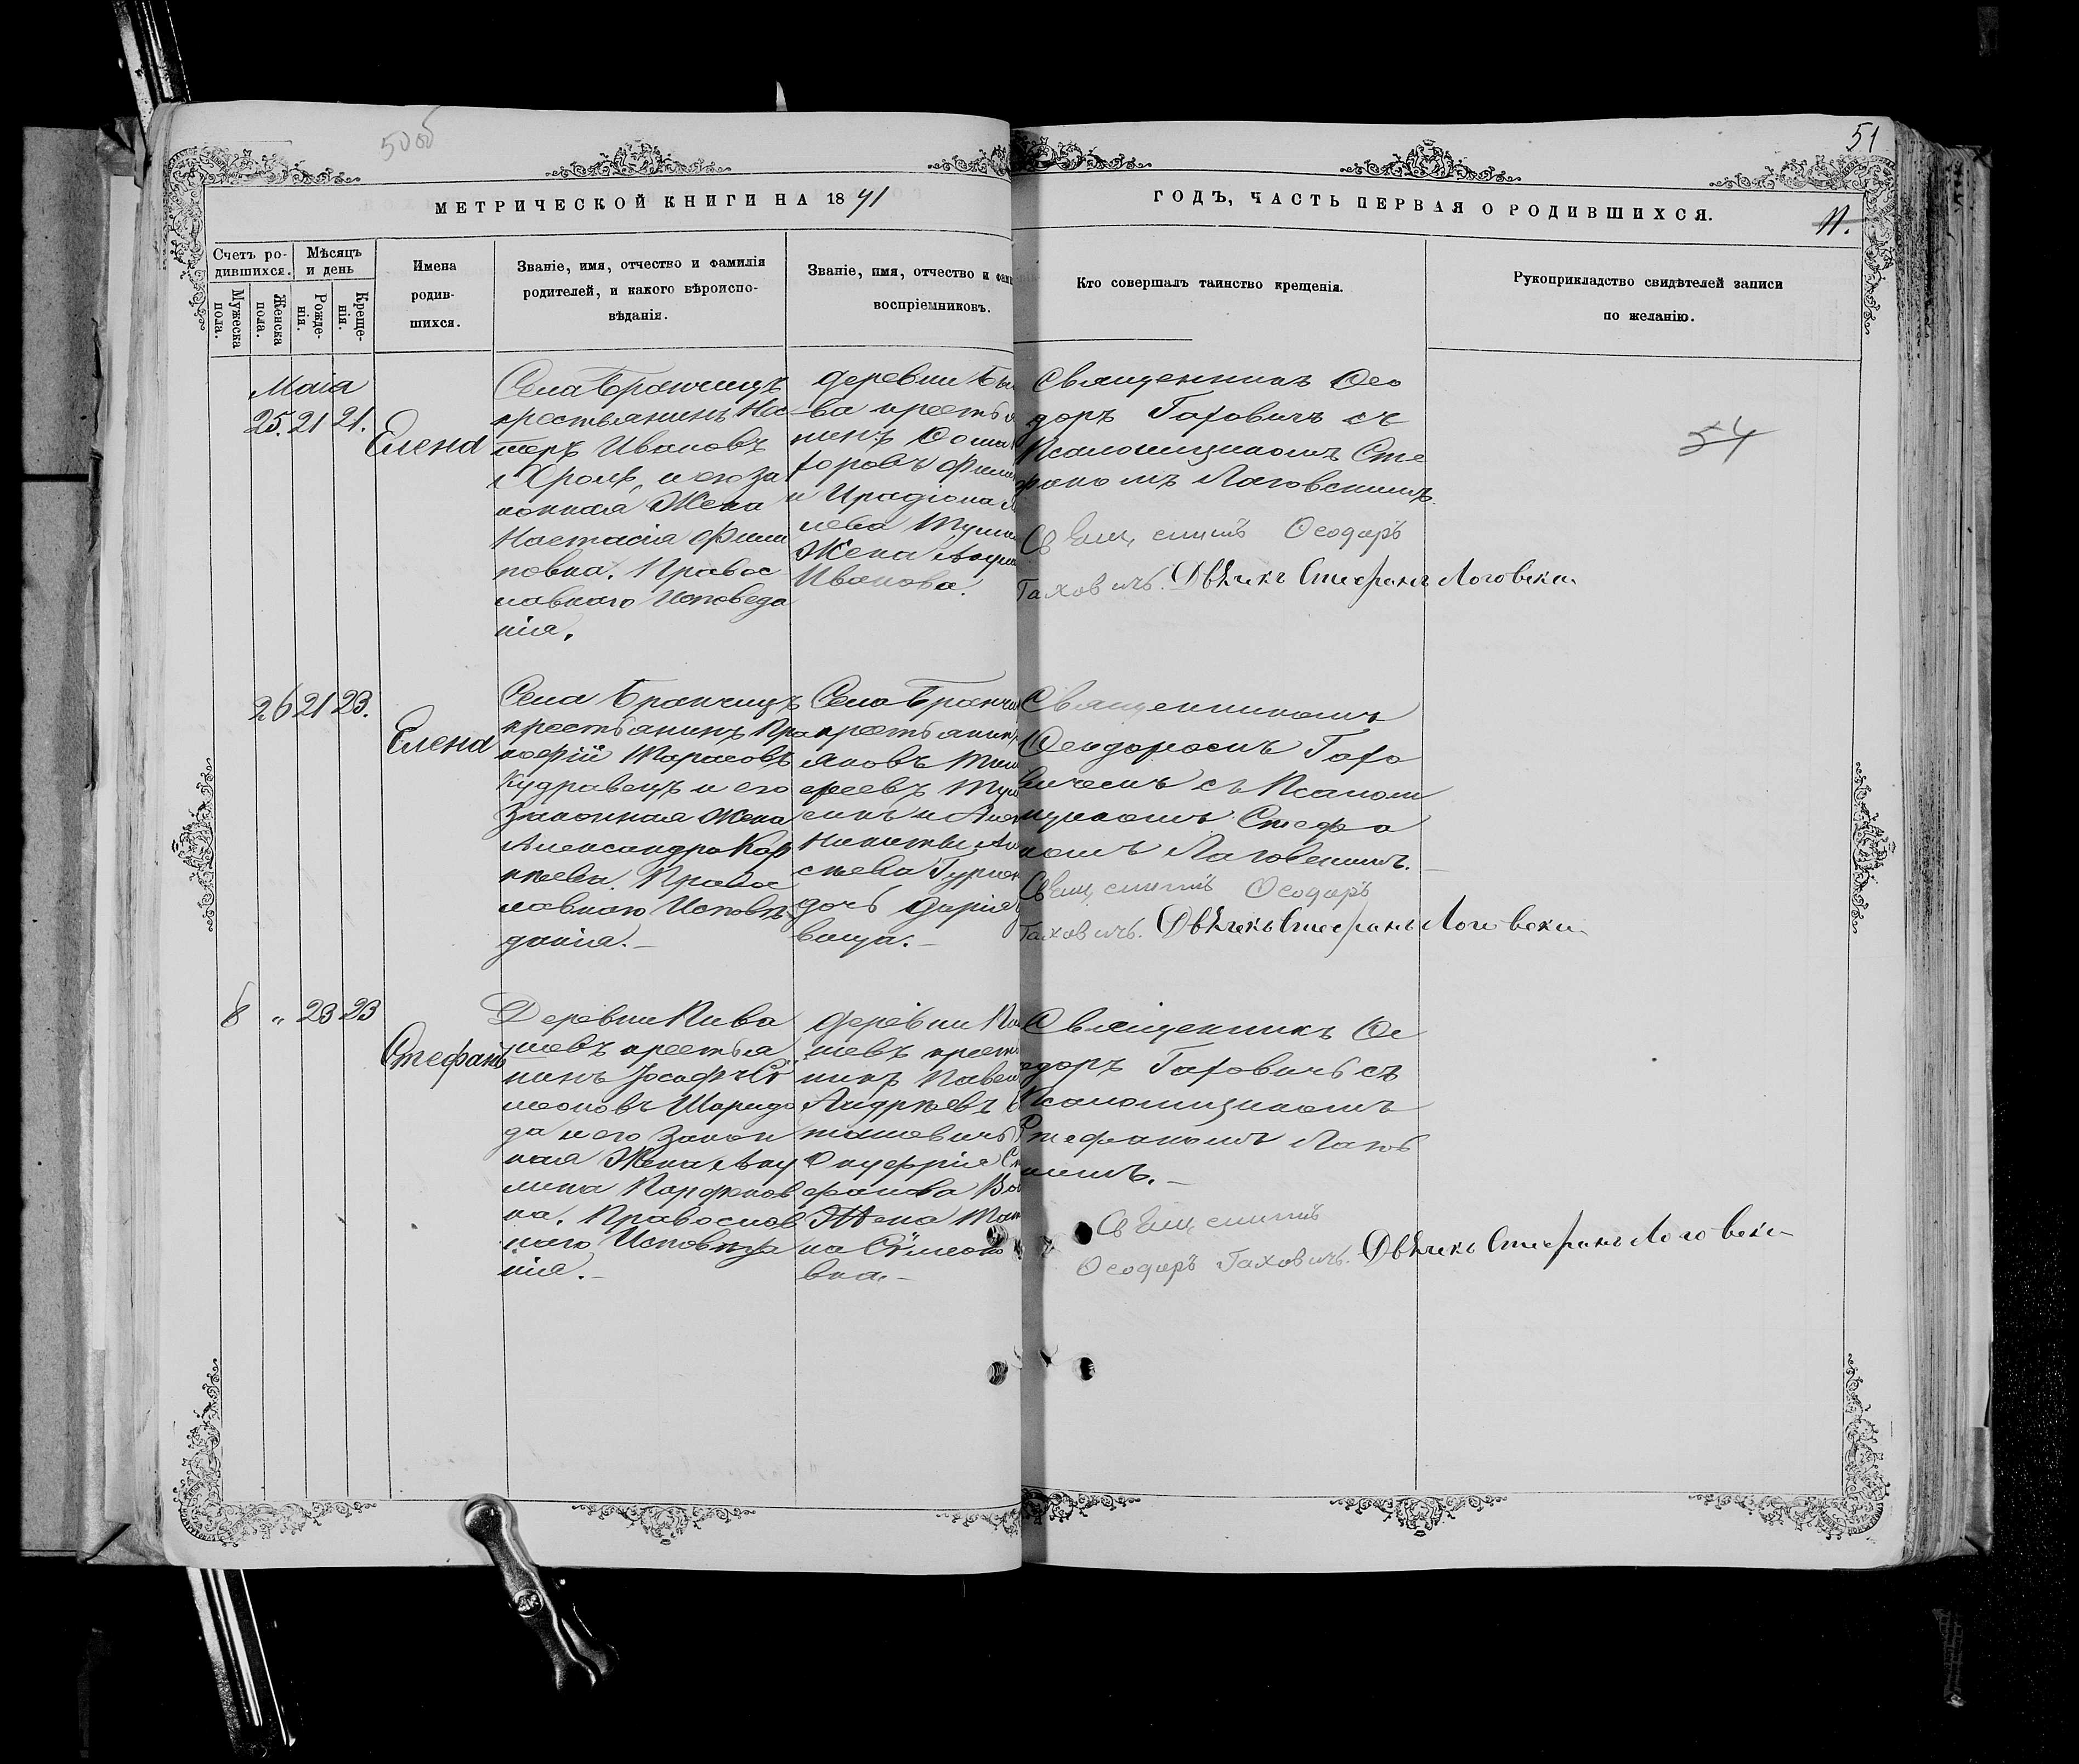 50об
51
МЕТРИЧЕСКОЙ КНИГИ НА 1891
ГОДЪ, ЧАСТЬ ПЕРВАЯ О РОДИВШИХСЯ.
11.
Счетъ ро-
дившихся.
Мужеска
пола.
Женска
пола.
Мѣсяцъ
и день
Рожде-
нія.
Креще-
нія.
Имена
родив-
шихся.
Званіе, имя, отчество и фамилія
родителей, и какого вѣроиспо-
вѣданія.
Званіе, имя, отчество и фам
воспріемниковъ.
Кто совершалъ таинство крещенія.
Рукоприкладство свидѣтелей записи
по желанію.
54
Маія
25. 21 21.
Елена
Села Бранчицъ
крестьянинъ Нес
теръ Ивановъ
Кроль, и его за
конная Жена
Настасія Фили
повна. Правос
лавнаго Исповеда
нія.
деревни
ва крестья
нинъ
и Ираідіона
Жена
Иванова.
Священникъ Ѳео
доръ Гаховичъ съ
Псаломщикомъ Сте
фаномъ Лаговскимъ
Свящ Ѳеодоръ
Гаховичъ. Дьячекъ Стефанъ Логовски
26 21 23.
Елена
Села Бранчицъ
крестьянинъ Про
кофій Тарасовъ
Кудравецъ и его
Законная Жена
Александра Кар
пѣева. Правос
лавнаго Исповѣ
данія.
Села Бранчи
крестьянин
Яковъ
дочь Дарія
Священникомъ
Ѳеодоромъ Гахо
вичемъ съ Псалом
щикомъ Стефа
номъ Лаговскимъ.
Свящ Ѳеодоръ
Гаховичъ. Дьячекъ Стефанъ Логовски
8 „ 23 23
Стефанъ
Деревни Пива
шовъ крестья
нинъ Іосафъ Си
меоновъ Шаридо
да и его Закон
ная Жена Аку
лина Парфенов
на. Православ
наго Исповѣда
нія.
деревни Пи
шевъ крестья
нинъ Павел
Андрѣевъ
Жена
на Симео
вна.
Священникъ Ѳе
одоръ Гаховичъ съ
Псаломщикомъ
Стефаномъ Лагов
скимъ.
Свящ
Ѳеодоръ Гаховичъ. Дьячекъ Стефанъ Логовски